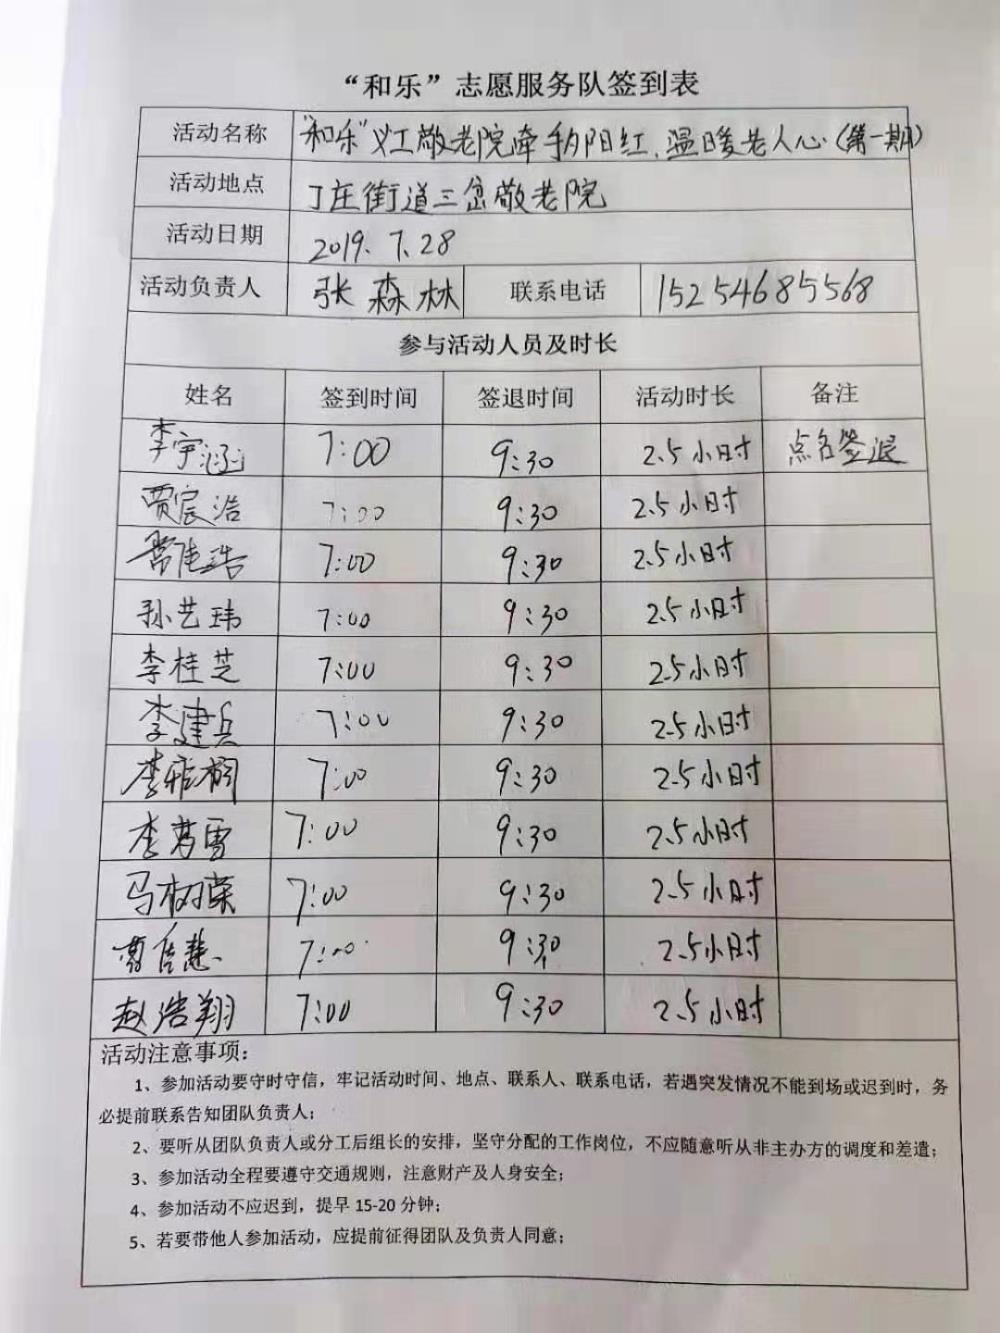 “和乐”志愿服务队签到表
活动名称 “和乐”义工敬老院牵手夕阳红、温暖老人心（第一期）
活动地点 丁庄街道三岔敬老院
活动日期 2019.7.28
活动负责人 张森林 联系电话 15254685568
参与活动人员及时长
姓名 签到时间 签退时间 活动时长 备注
李宇涵 7:00 9:30 2.5小时 点名签退
贾宸浩 7:00 9:30 2.5小时
7:00 9:30 2.5小时
孙艺玮 7:00 9:30 2.5小时
李桂芝 7:00 9:30 2.5小时
李建兵 7:00 9:30 2.5小时
李雅桐 7:00 9:30 2.5小时
李 雪 7:00 9:30 2.5小时
马树荣 7:00 9:30 2.5小时
慧 7:00 9:30 2.5小时
赵浩翔 7:00 9:30 2.5小时
活动注意事项：
1、参加活动要守时守信，牢记活动时间、地点、联系人、联系电话，若遇突发情况不能到场或迟到时，务
必提前联系告知团队负责人；
2、要听从团队负责人或分工后组长的安排，坚守分配的工作岗位，不应随意听从非主办方的调度和差遣；
3、参加活动全程要遵守交通规则，注意财产及人身安全；
4、参加活动不应迟到，提早 15-20 分钟；
5、若要带他人参加活动，应提前征得团队及负责人同意；